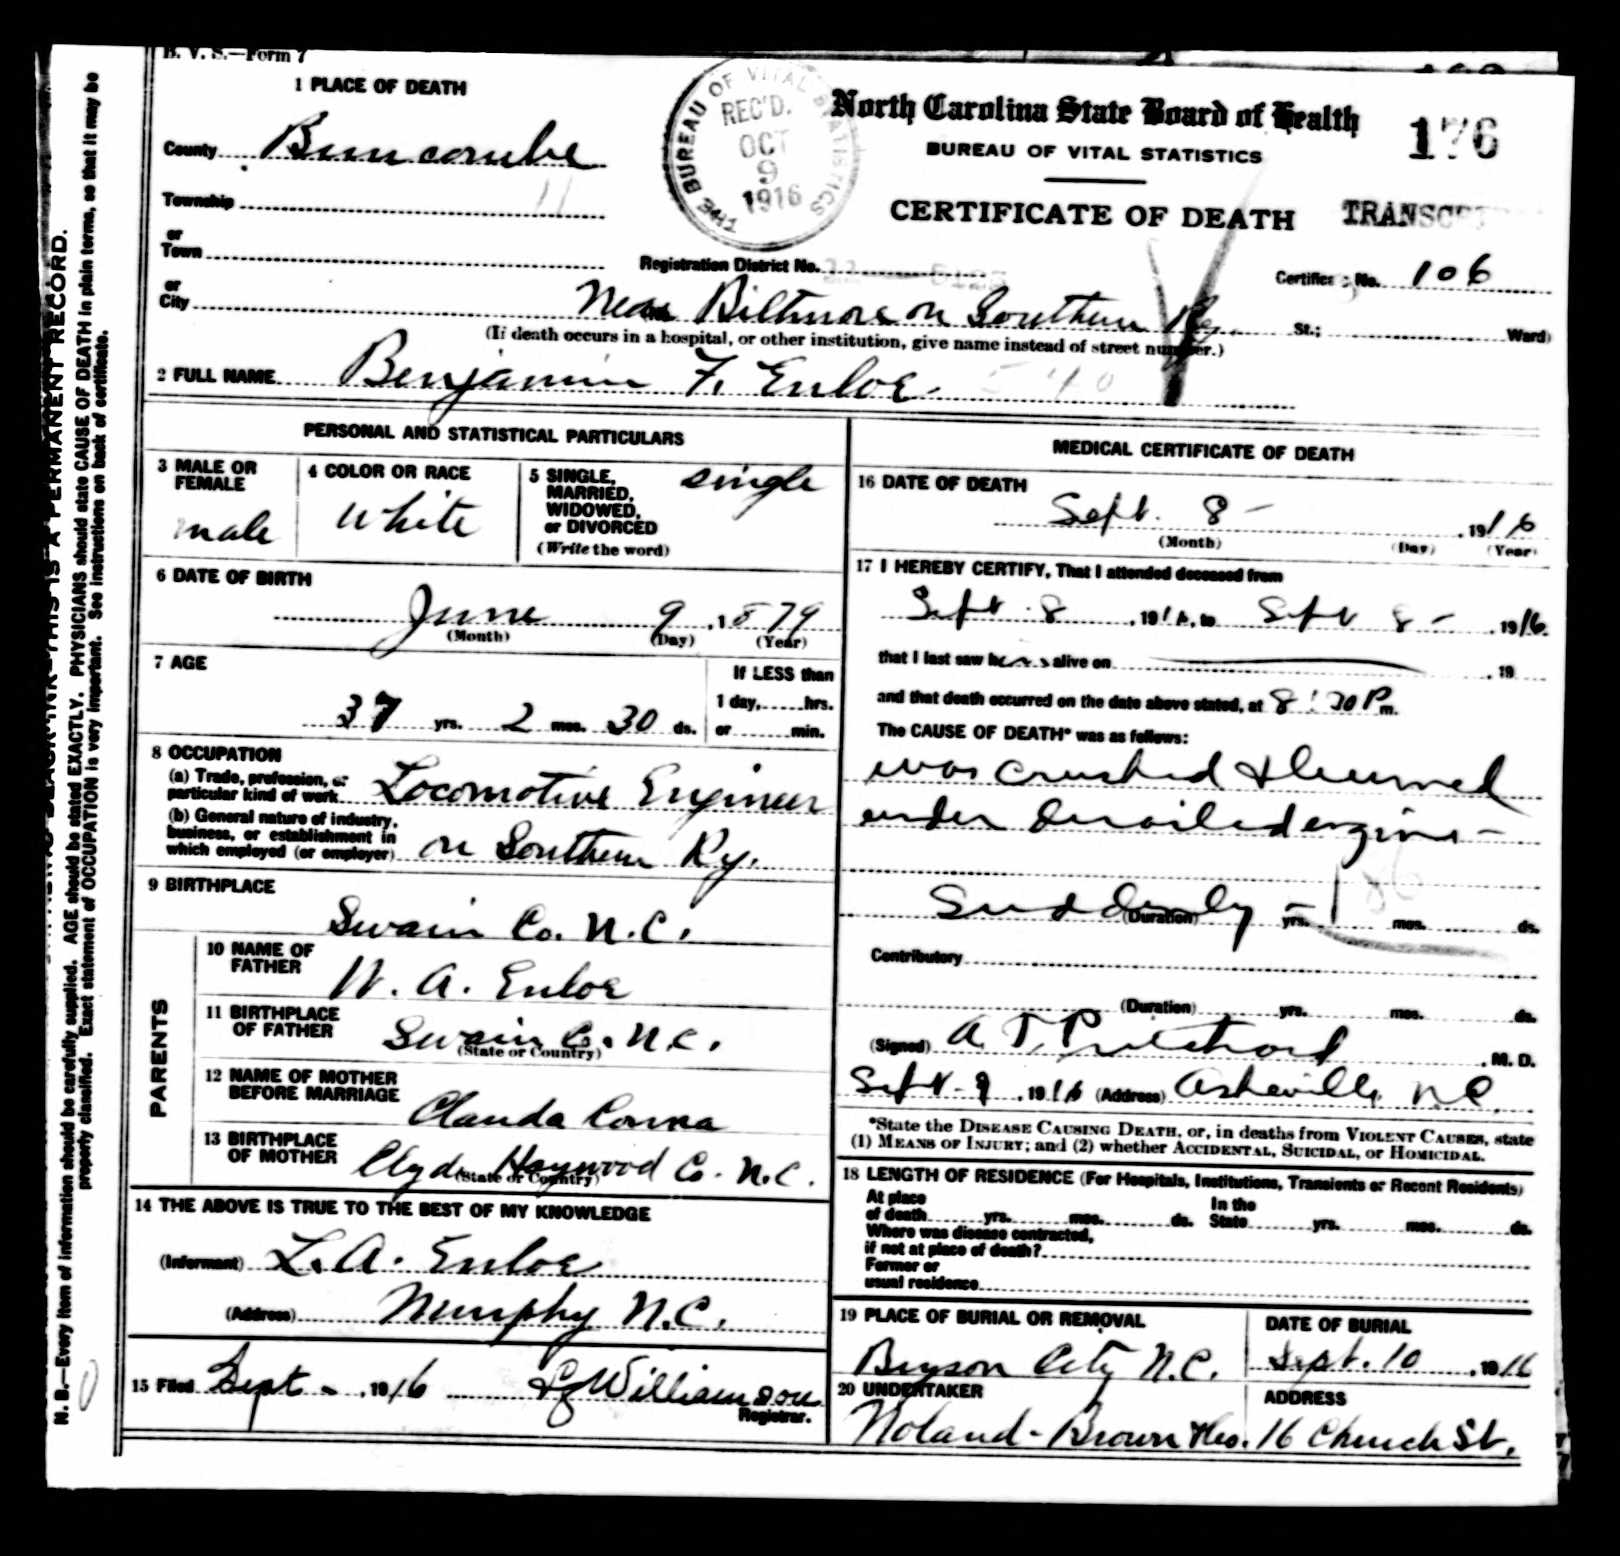 B. V. S.—Form 7
1 PLACE OF DEATH
County Buncombe
Township 11
or
Town
or
City
THE BUREAU OF VITAL STATISTICS
REC'D.
OCT
9
1916
North Carolina State Board of Health
BUREAU OF VITAL STATISTICS
176
CERTIFICATE OF DEATH
Registration District No.
Certificate No. 106
Near Biltmore on Southern Ry. St.; Ward)
(If death occurs in a hospital, or other institution, give name instead of street number.)
2 FULL NAME Benjamin F. Enloe
PERSONAL AND STATISTICAL PARTICULARS
3 MALE OR FEMALE
male
4 COLOR OR RACE
White
5 SINGLE, MARRIED, WIDOWED, or DIVORCED
(Write the word)
single
6 DATE OF BIRTH
June 9, 1879
(Month) (Day) (Year)
7 AGE
37 yrs. 2 mos. 30 ds.
If LESS than
1 day, hrs.
or min.
8 OCCUPATION
(a) Trade, profession, or
particular kind of work Locomotive Engineer
(b) General nature of industry,
business, or establishment in
which employed (or employer) on Southern Ry.
9 BIRTHPLACE
Swain Co. N.C.
PARENTS
10 NAME OF FATHER
W. A. Enloe
11 BIRTHPLACE OF FATHER
Swain Co. N.C.
(State or Country)
12 NAME OF MOTHER BEFORE MARRIAGE
13 BIRTHPLACE OF MOTHER
Clyde Haywood Co. N.C.
(State or Country)
14 THE ABOVE IS TRUE TO THE BEST OF MY KNOWLEDGE
(Informant) L. A. Enloe
(Address) Murphy N.C.
15 Filed Sept - , 1916 Williamson
Registrar.
MEDICAL CERTIFICATE OF DEATH
16 DATE OF DEATH
Sept. 8 - , 1916
(Month) (Day) (Year)
17 I HEREBY CERTIFY, That I attended deceased from
Sept. 8, 1916, to Sept 8 - , 1916.
that I last saw h alive on , 19
and that death occurred on the date above stated, at 8:30 P m.
The CAUSE OF DEATH* was as follows:
was crushed & burned
under derailed engine -
suddenly -
(Duration) yrs. mos. ds.
Contributory
(Duration) yrs. mos. ds.
(Signed) A. T. Pritchard, M. D.
Sept - 9, 1916 (Address) Asheville, N.C.
*State the DISEASE CAUSING DEATH, or, in deaths from VIOLENT CAUSES, state
(1) MEANS OF INJURY; and (2) whether ACCIDENTAL, SUICIDAL, or HOMICIDAL.
18 LENGTH OF RESIDENCE (For Hospitals, Institutions, Transients or Recent Residents)
At place
of death yrs. mos. ds.
In the
State yrs. mos. ds.
Where was disease contracted,
if not at place of death?
Former or
usual residence
19 PLACE OF BURIAL OR REMOVAL
Bryson City N.C.
DATE OF BURIAL
Sept. 10, 1916
20 UNDERTAKER
Noland - Brown
ADDRESS
16 Church St.
N. B.—Every item of information should be carefully supplied. AGE should be stated EXACTLY. PHYSICIANS should state CAUSE OF DEATH in plain terms, so that it may be
properly classified. Exact statement of OCCUPATION is very important. See instructions on back of certificate.
THIS IS A PERMANENT RECORD.